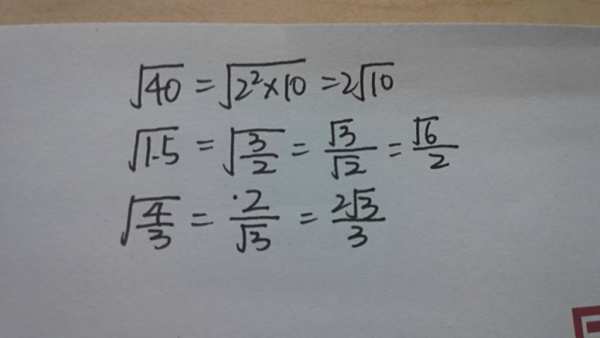 √40 = √(2²×10) = 2√10
√1.5 = √(3/2) = √3/√2 = √6/2
√(4/3) = 2/√3 = 2√3/3